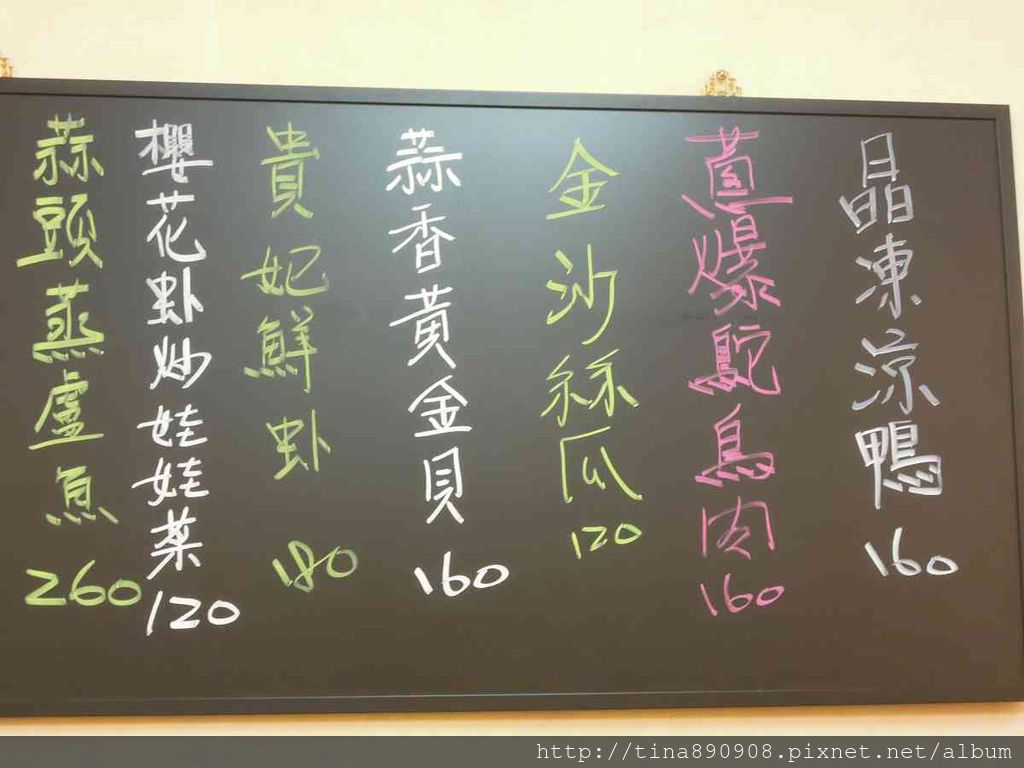 晶凍涼鴨 160
薑爆鴕鳥肉 160
金沙絲瓜 120
蒜香黃金貝 160
貴妃鮮虾 180
櫻花虾炒娃娃菜 120
蒜頭蒸盧魚 260
http://tina890908.pixnet.net/album